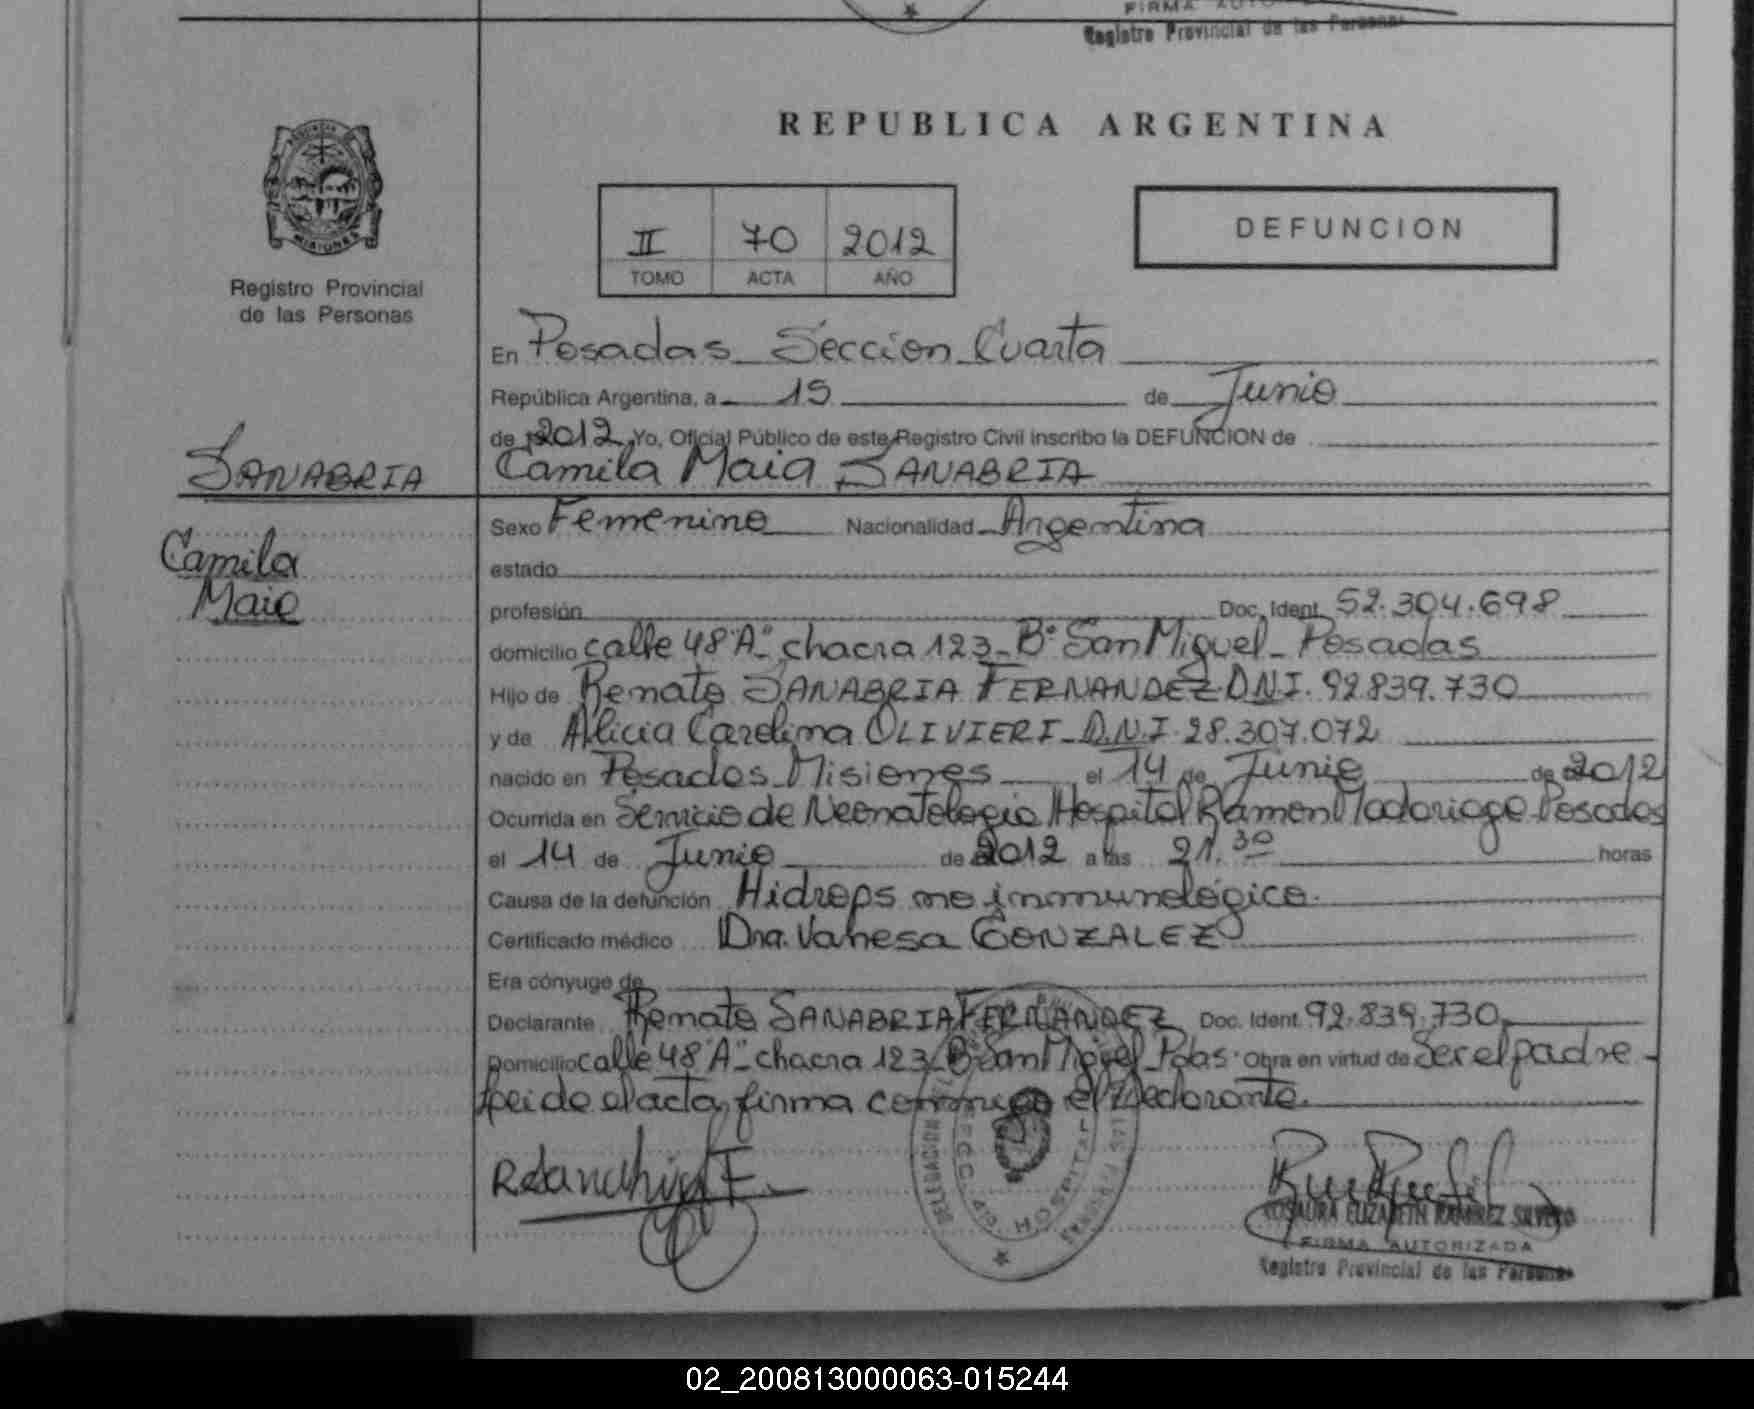 FIRMA AUTOR
Registro Provincial de las Personas
REPUBLICA ARGENTINA
MISIONES
Registro Provincial
de las Personas
II 70 2012
TOMO ACTA AÑO
DEFUNCION
En Posadas Seccion Cuarta
República Argentina, a 15 de Junio
de 2012, Yo, Oficial Público de este Registro Civil inscribo la DEFUNCION de
SANABRIA
Camila Maia SANABRIA
Camila
Maia
Sexo Femenino Nacionalidad Argentina
estado
profesión Doc. Ident. 52.304.698
domicilio calle 48"A" chacra 123 - B° San Miguel - Posadas
Hijo de Renato SANABRIA FERNANDEZ D.N.I. 92.839.730
y de Alicia Carolina OLIVIERI - D.N.I. 28.307.072
nacido en Posadas Misiones el 14 de Junio de 2012
Ocurrida en Servicio de Neonatologia Hospital Ramon Madariaga - Posadas
el 14 de Junio de 2012 a las 21.30 horas
Causa de la defunción Hidrops no inmunológico.
Certificado médico Dra. Vanesa GONZALEZ
Era cónyuge de
Declarante Renato SANABRIA FERNANDEZ Doc. Ident. 92.839.730
Domicilio calle 48"A" - chacra 123 B° San Miguel - Pdas. Obra en virtud de Ser el padre -
Leido el acta, firma conmigo el Declarante.
DELEGACION
SECC. 4a. HOSPITAL
R Sanabria F.
ROSAURA ELIZABETH RAMIREZ SILVERO
FIRMA AUTORIZADA
Registro Provincial de las Personas
02_200813000063-015244